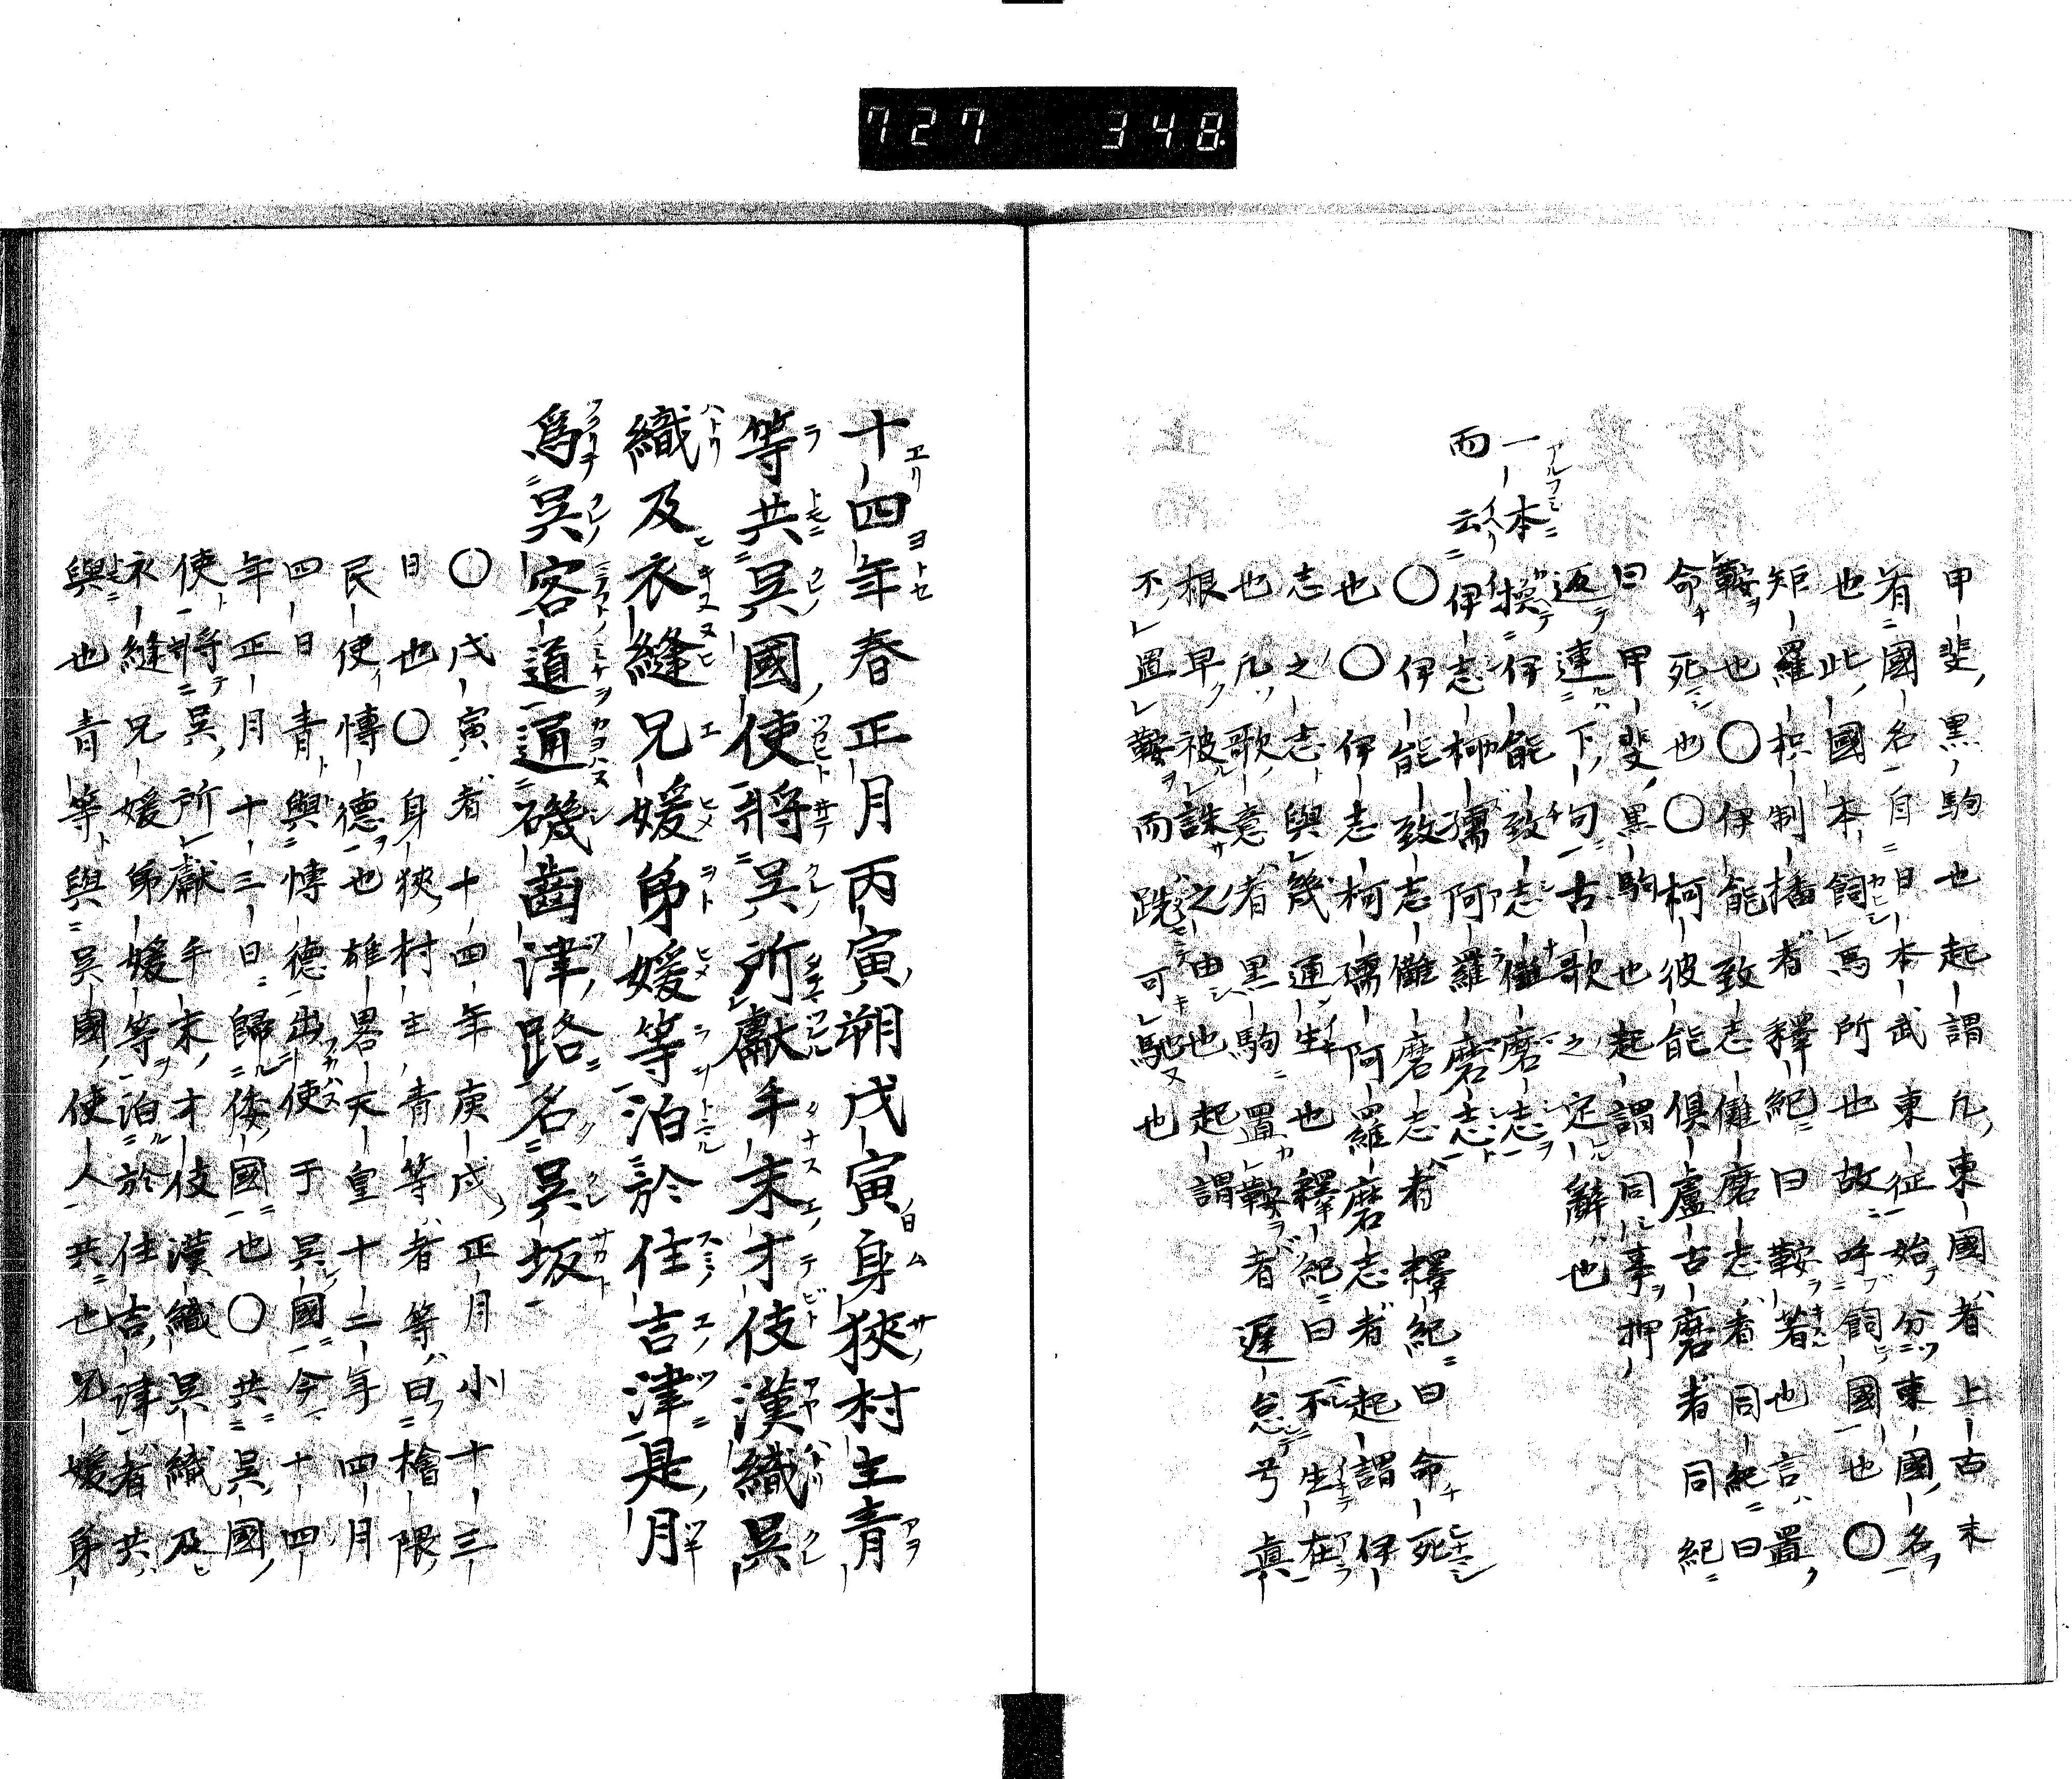 727 348
甲斐黒駒也起謂凡東國者上古末
有國名自日本武東征始分東國名
也此國本飼馬所也故呼飼國也〇
矩羅枳制播者釋紀曰鞍著也言置
鞍也〇伊能致志儺磨志者同紀曰
命死也〇柯彼能倶盧古磨者同紀
曰甲斐黒駒也起謂同事押
返連下句古歌之定辭也
一本換伊能致志儺磨志
而云伊志柯孺阿羅磨志
〇伊能致志儺磨志者釋紀曰命死
也〇伊志柯孺阿羅磨志者起謂伊
志之志與幾通生也釋紀曰不生在
也凡歌意者黒駒置鞍者遲怠兮眞
根早被誅之由也起謂
不置鞍而跣可馳也
十四年春正月丙寅朔戊寅身狹村主青
等共呉國使將呉所獻手末才伎漢織呉
織及衣縫兄媛弟媛等泊於住吉津是月
爲呉客道通磯齒津路名呉坂
〇戊寅者十四年庚戌正月小十三
日也〇身狹村主青等者等曰檜隈
民使博德也雄畧天皇十二年四月
四日青與博德出使于呉國今十四
年正月十三日歸倭國也〇共呉國
使將呉所獻手末才伎漢織呉織及
衣縫兄媛弟媛等泊於住吉津者共
與也青等與呉國使人共也兄媛弟